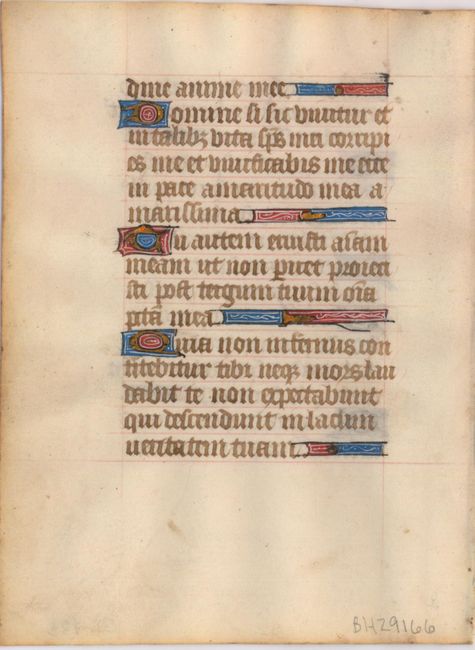 dine anime mee
Domine si sic vivitur et
in talibꝫ vita sp̄s mei corripi
es me et vivificabis me ecce
in pace amaritudo mea a
marissima
Tu autem eruisti aīam
meam ut non ꝑiret proieci
sti post tergum tuum oīa
pctā mea
Quia non infernus con
fitebitur tibi neqꝫ mors lau
dabit te non expectabunt
qui descendunt in lacum
veritatem tuam
BH29166